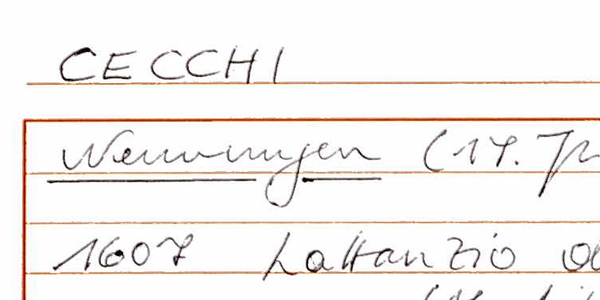 CECCHI
Nennungen (17. Jh
1607 Lattanzio